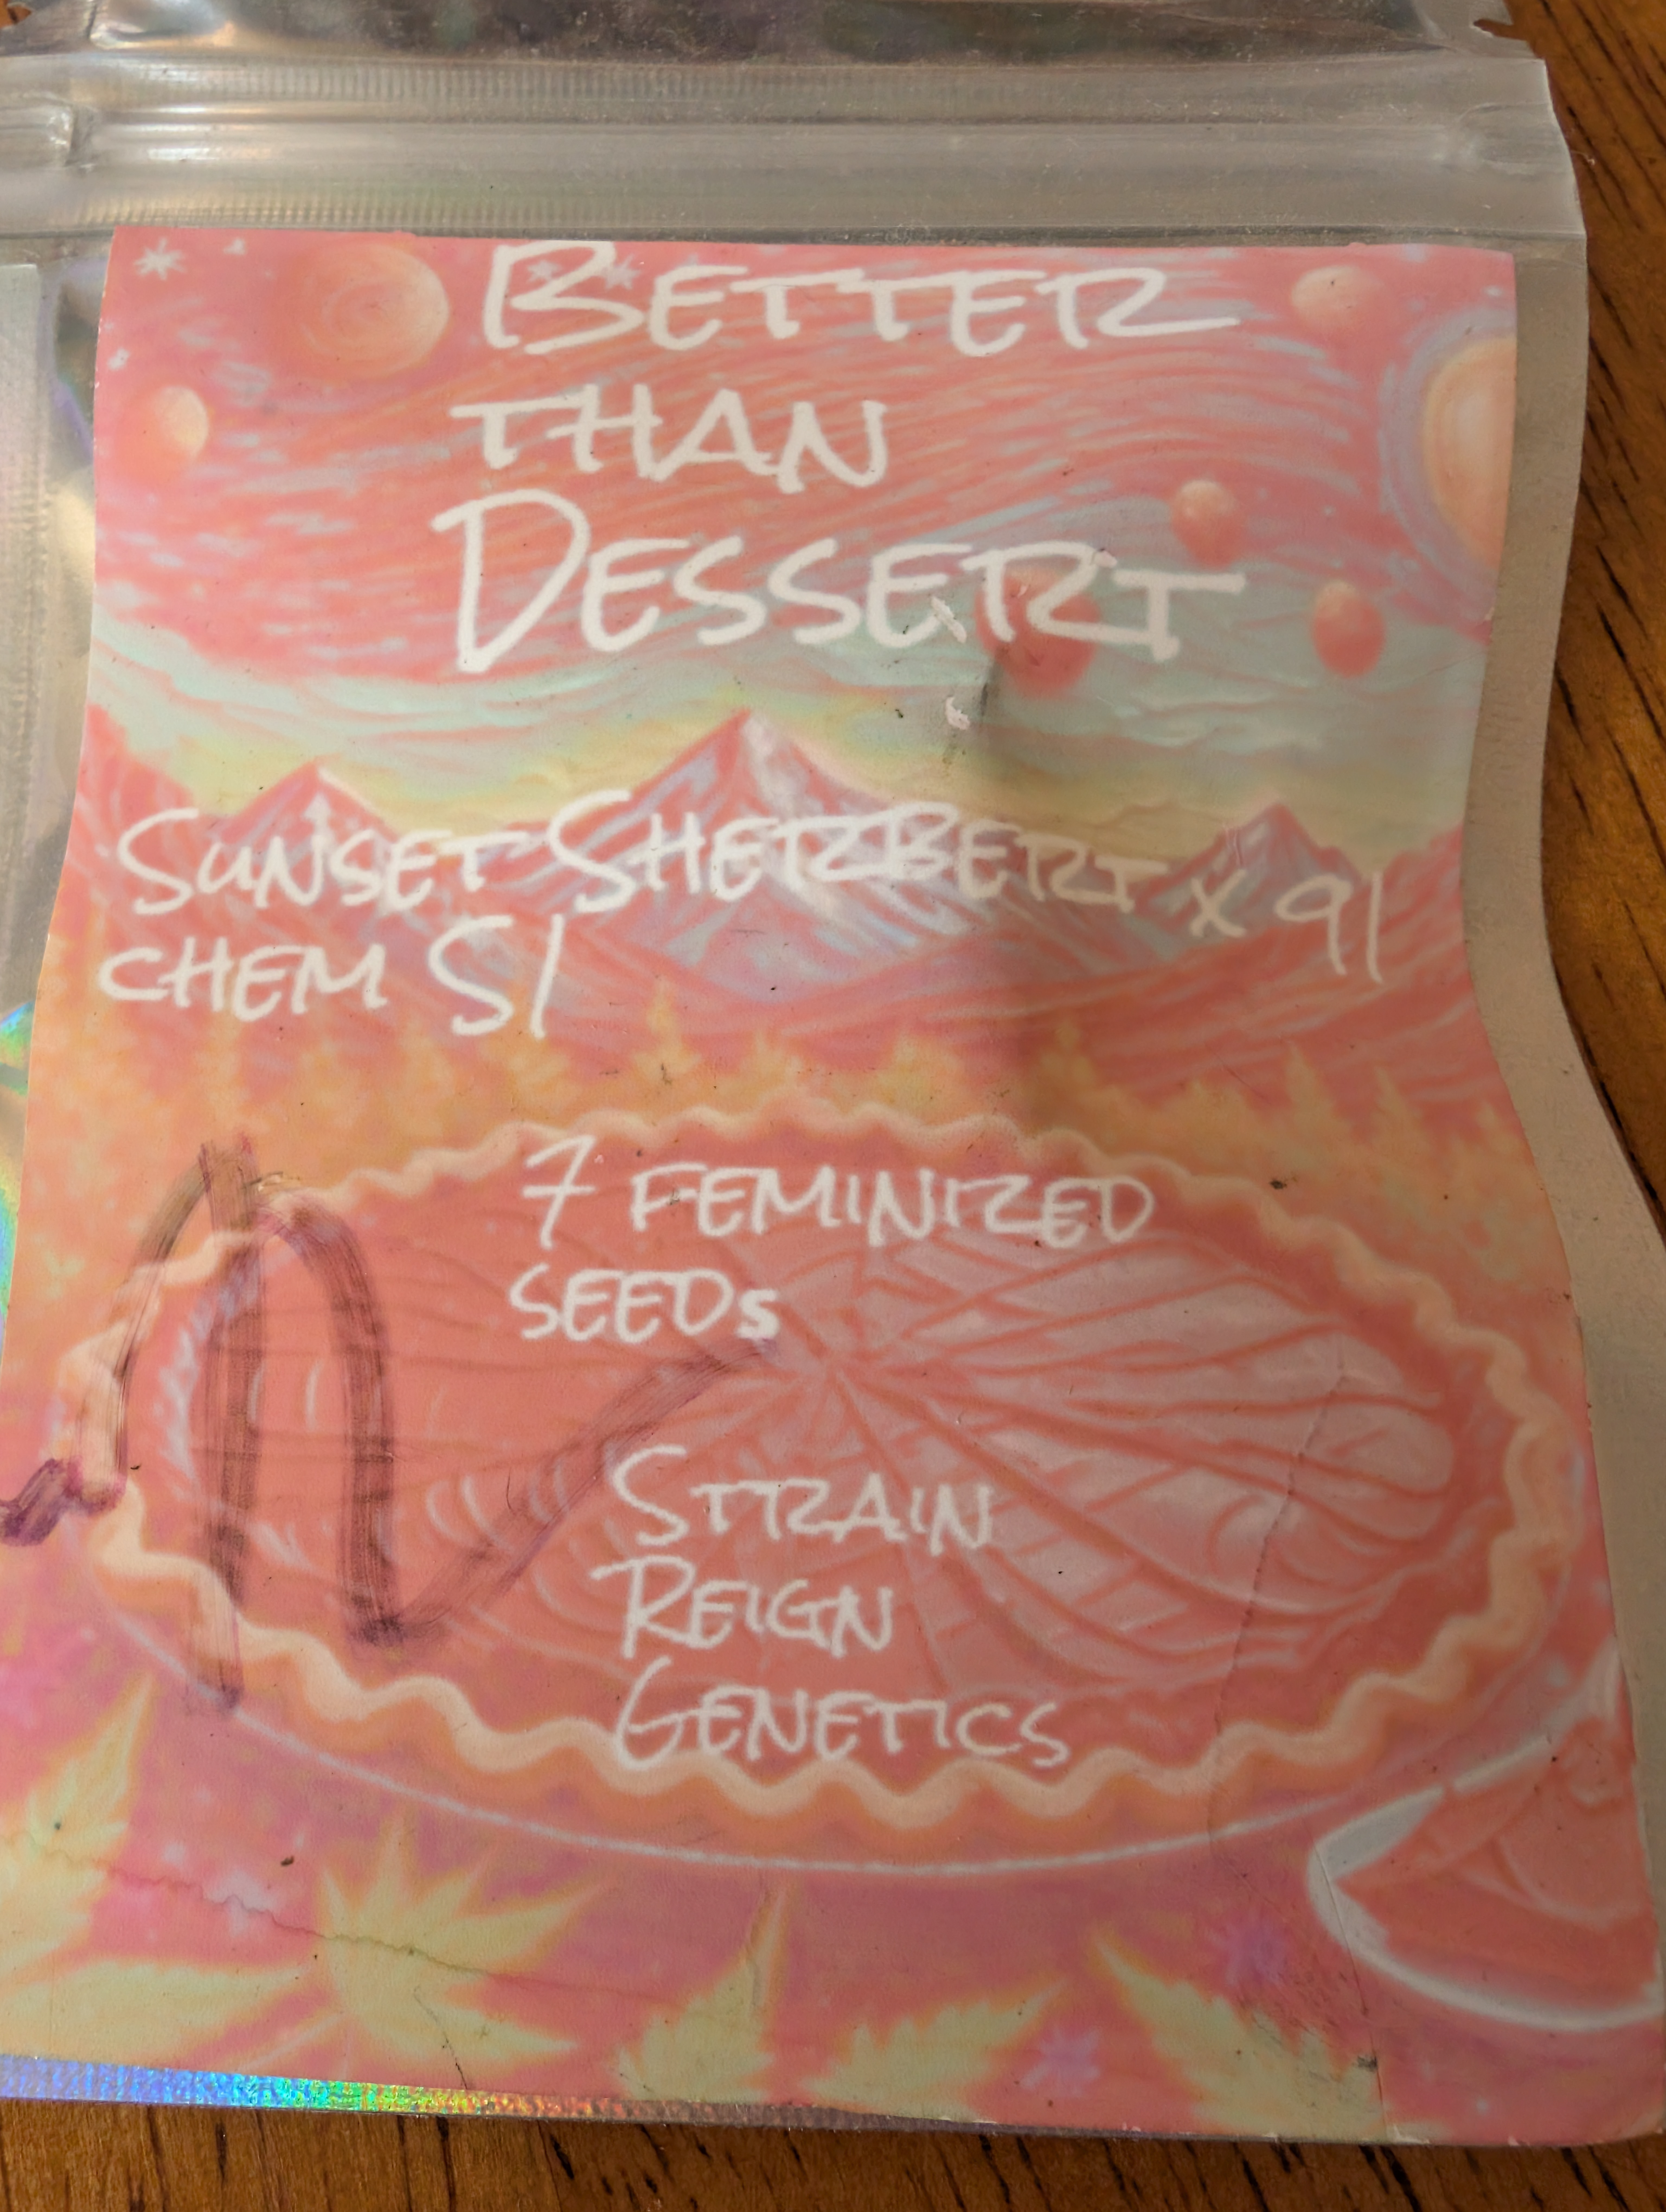 BETTER
THAN
DESSERT
SUNSET SHERBERT x 91
CHEM S1
7 FEMINIZED
SEEDs
STRAIN
REIGN
GENETICS